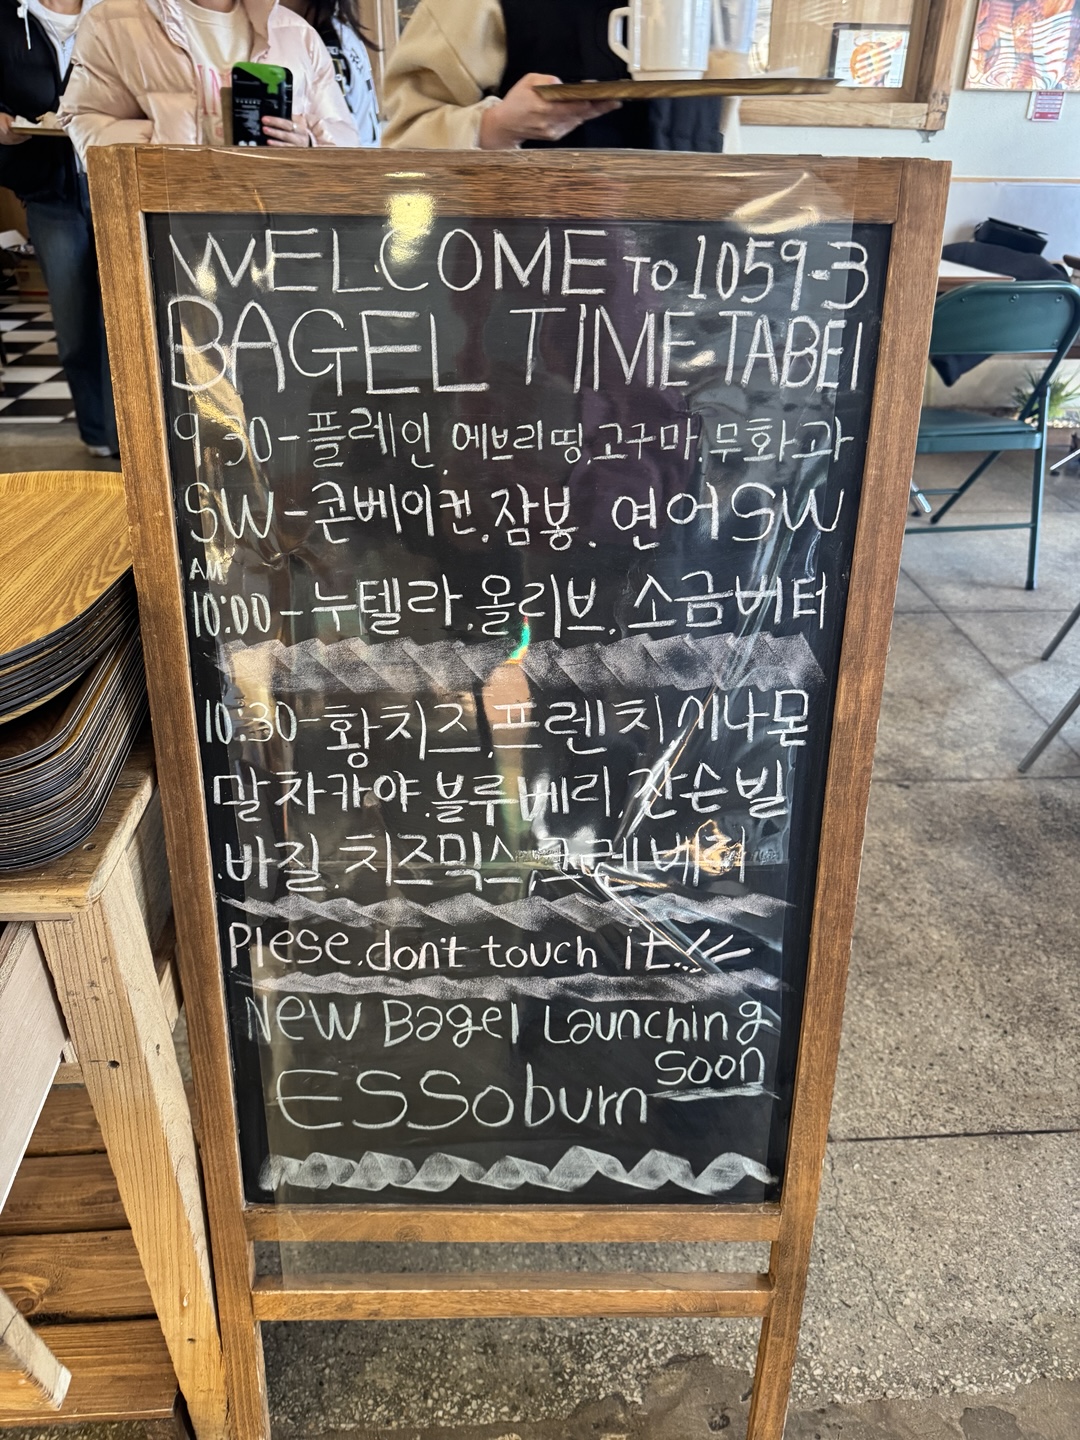 WELCOME TO 1059-3
BAGEL TIME TABEl
9:30-플레인.에브리띵.고구마.무화과
SW-콘베이컨.잠봉. 연어SW
AM
10:00-누텔라.올리브.소금버터
10:30-황치즈.프렌치시나몬
말차카야.블루베리.잔슨빌
.바질.치즈믹스.크렌베리
Plese.don't touch it!!!
New Bagel Launching
soon
ESSoburn